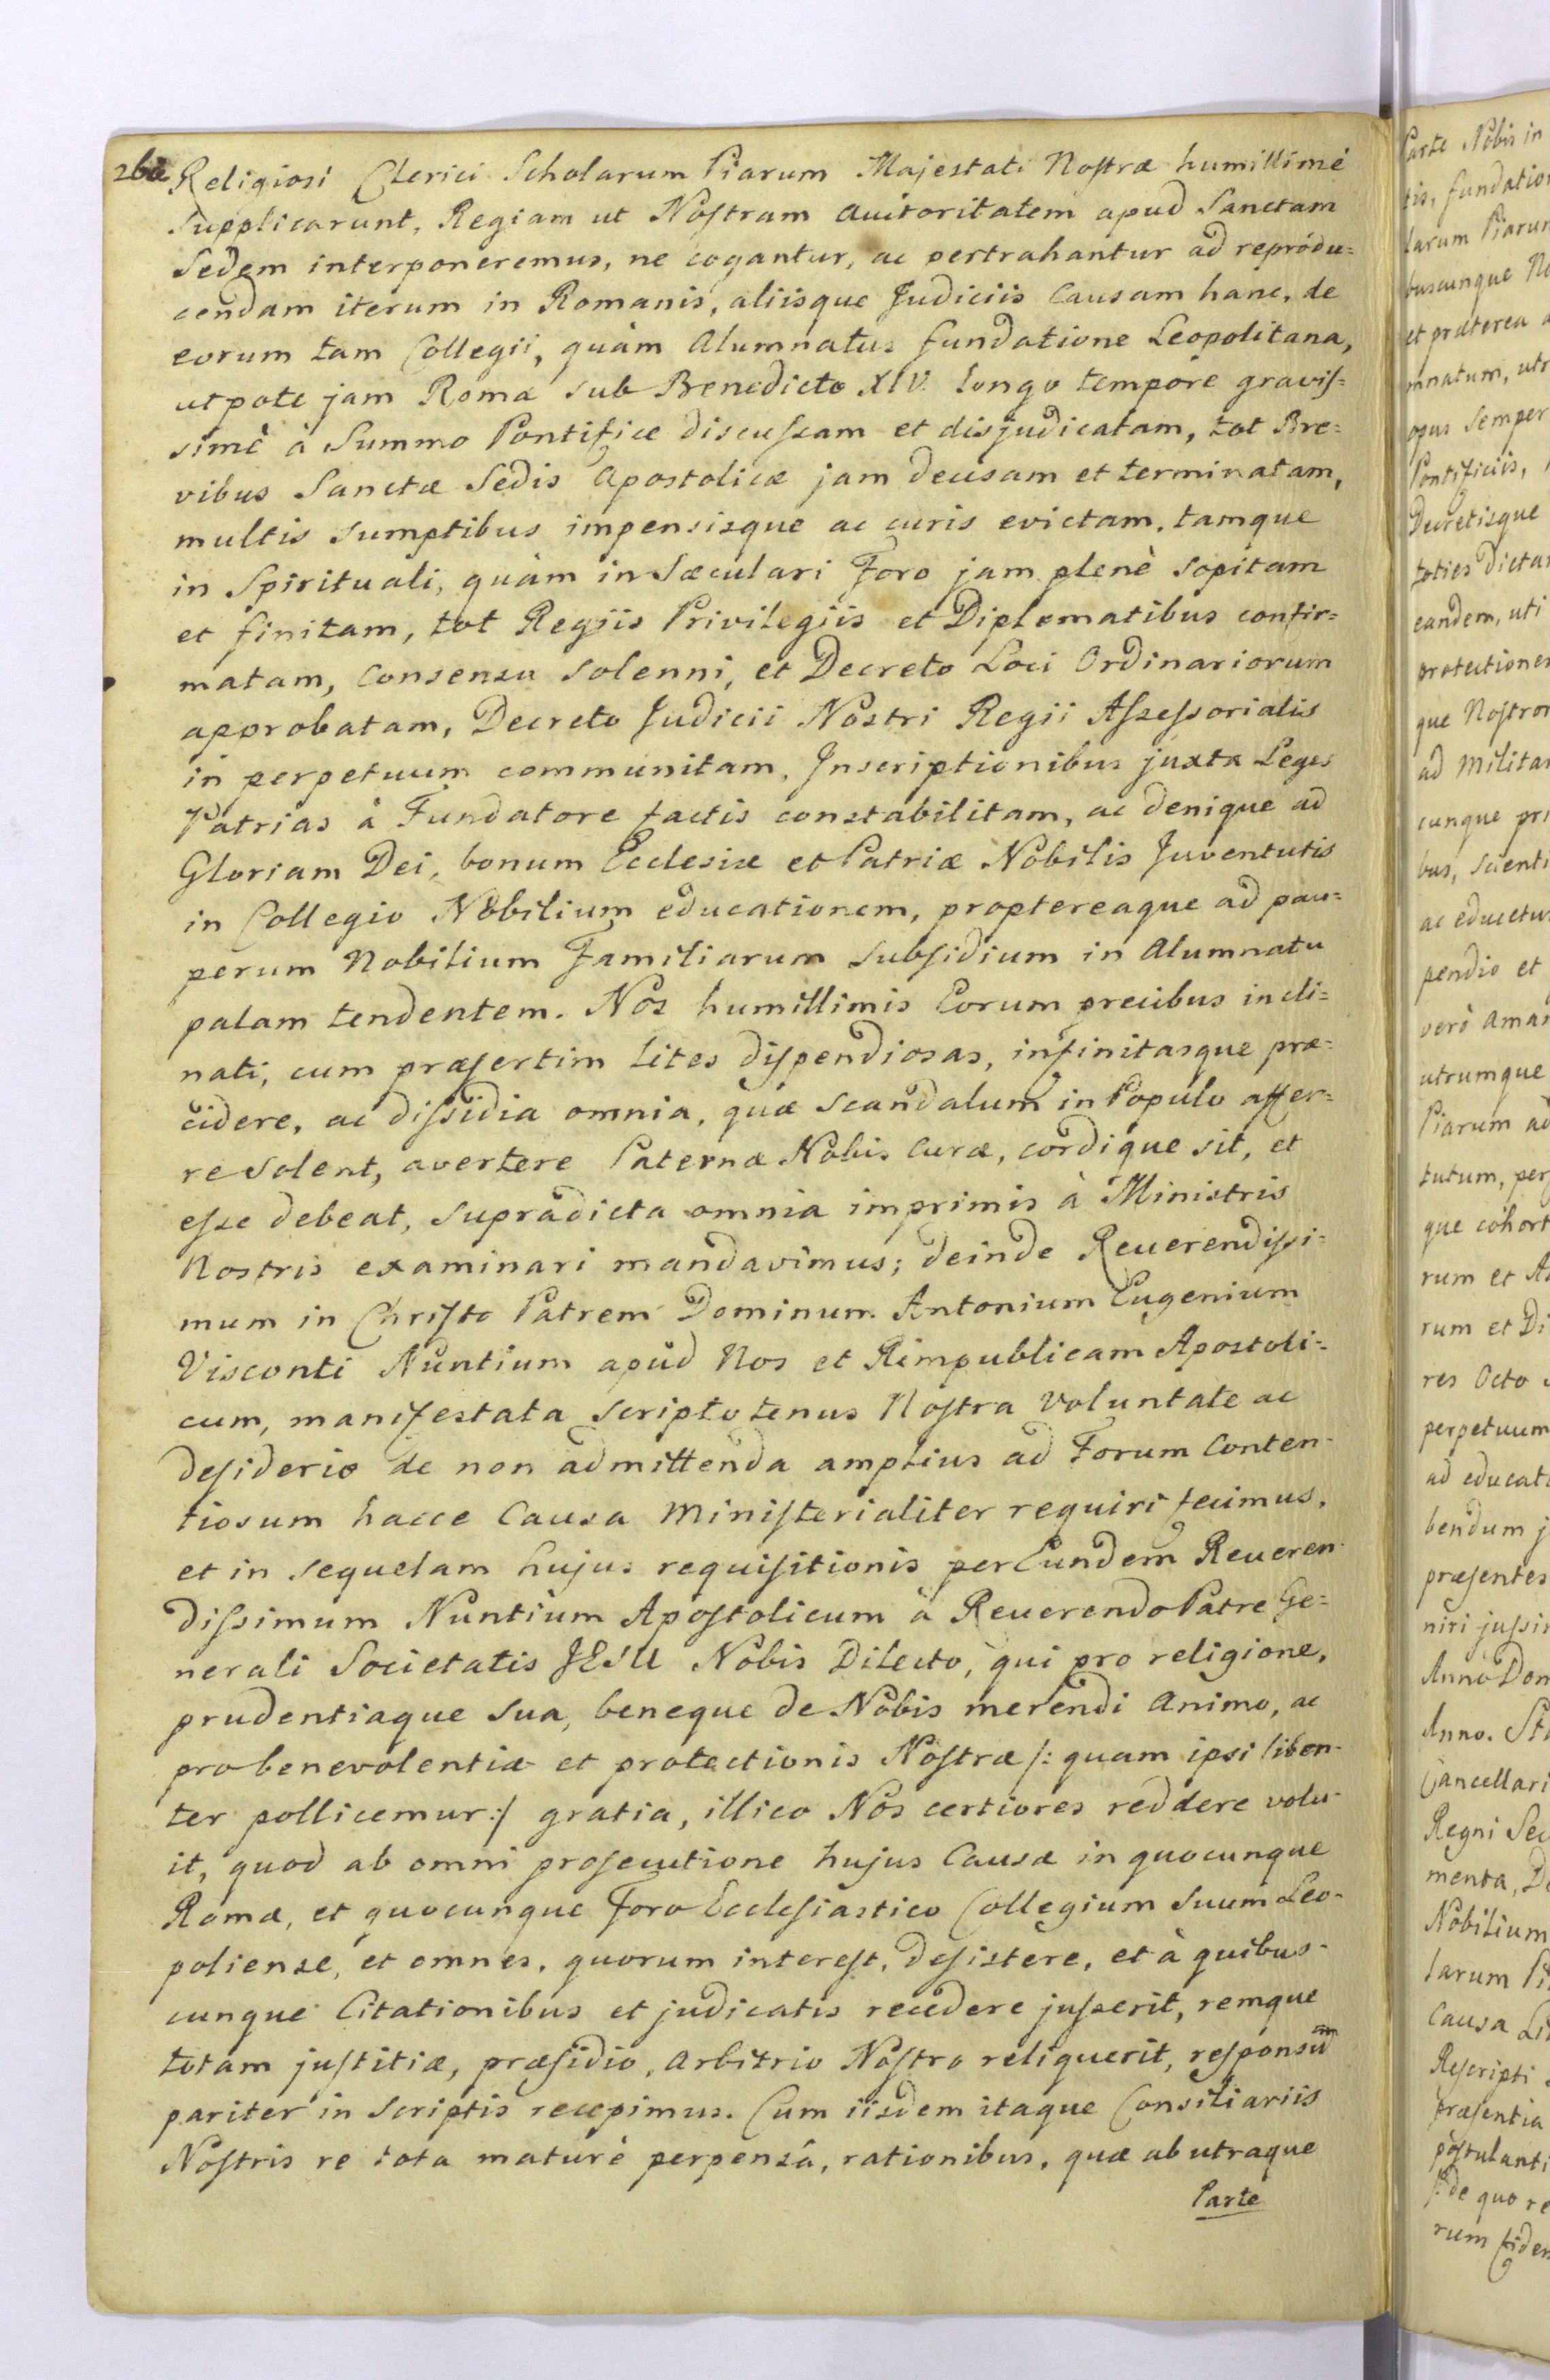 260
Religiosi Clerici Scholarum Piarum Majestati Nostræ humillimè
supplicarunt, Regiam ut Nostram Auctoritatem apud Sanctam
Sedem interponeremus, ne cogantur, ac pertrahantur ad reprodu=
cendam iterum in Romanis, aliisque Judiciis Causam hanc, de
eorum tam Collegii, quàm Alumnatus fundatione Leopolitana,
utpote jam Romæ sub Benedicto XIV. longo tempore gravis=
simè à Summo Pontifice discussam et disjudicatam, tot Bre=
vibus Sanctæ Sedis Apostolicæ jam decisam et terminatam,
multis sumptibus impensisque ac curis evictam, tamque
in Spirituali, quàm in Sæculari Foro jam plenè sopitam
et finitam, tot Regiis Privilegiis et Diplomatibus confir=
matam, Consensu solenni, et Decreto Loci Ordinariorum
approbatam, Decreto Judicii Nostri Regii Assessorialis
in perpetuum communitam, Inscriptionibus juxta Leges
Patrias à Fundatore factis constabilitam, ac denique ad
Gloriam Dei, bonum Ecclesiæ et Patriæ Nobilis Juventutis
in Collegio Nobilium educationem, proptereaque ad pau=
perum Nobilium Familiarum subsidium in Alumnatu
palam tendentem. Nos humillimis Eorum precibus incli=
nati, cum præsertim lites dispendiosas, infinitasque præ=
cidere, ac dissidia omnia, quæ scandalum in Populo affer=
re solent, avertere Paternæ Nobis curæ, cordique sit, et
esse debeat, supradicta omnia imprimis à Ministris
Nostris examinari mandavimus; deinde Reverendissi=
mum in Christo Patrem Dominum Antonium Eugenium
Visconti Nuntium apud Nos et Rempublicam Apostoli=
cum, manifestata scripto tenus Nostra Voluntate ac
desiderio de non admittenda amplius ad Forum Conten-
tiosum hacce Causa Ministerialiter requiri fecimus,
et in sequelam hujus requisitionis per Eundem Reveren-
dissimum Nuntium Apostolicum à Reverendo Patre Ge=
nerali Societatis JESU Nobis Dilecto, qui pro religione,
prudentiaque sua, beneque de Nobis merendi animo, ac
pro benevolentiæ et protectionis Nostræ /: quam ipsi liben-
ter pollicemur :/ gratia, illico Nos certiores reddere volu-
it, quod ab omni prosecutione hujus Causæ in quocunque
Romæ, et quocunque Foro Ecclesiastico Collegium Suum Leo-
poliense, et omnes, quorum interest, desistere, et à quibus-
cunque Citationibus et judicatis recedere jusserit, remque
totam justitiæ, præsidio, arbitrio Nostro reliquerit, responsum
pariter in scriptis recepimus. Cum iisdem itaque Consiliariis
Nostris re tota maturè perpensâ, rationibus, quæ ab utraque
Parte
Parte Nobis in
tis, fundatio
larum Piarum
buscunque No
et præterea a
mnatum, utr
opus semper
Pontificiis,
Decretisque
toties dicta
eandem, uti
protectionem
que Nostror
ad militar
cunque pri
bus, scienti
ac educetur
pendio et
verò aman
utrumque
Piarum ad
tutum, per
que cohort
rum et A
rum et Di
res Octo
perpetuum
ad educati
bendum j
præsentes
niri jussim
Anno Dom
Anno. St
Cancellari
Regni Sec
menta, D
Nobilium
larum Pi
Causa Li
Rescripti
præsentia
postulanti
/: de quo re
rum fidem